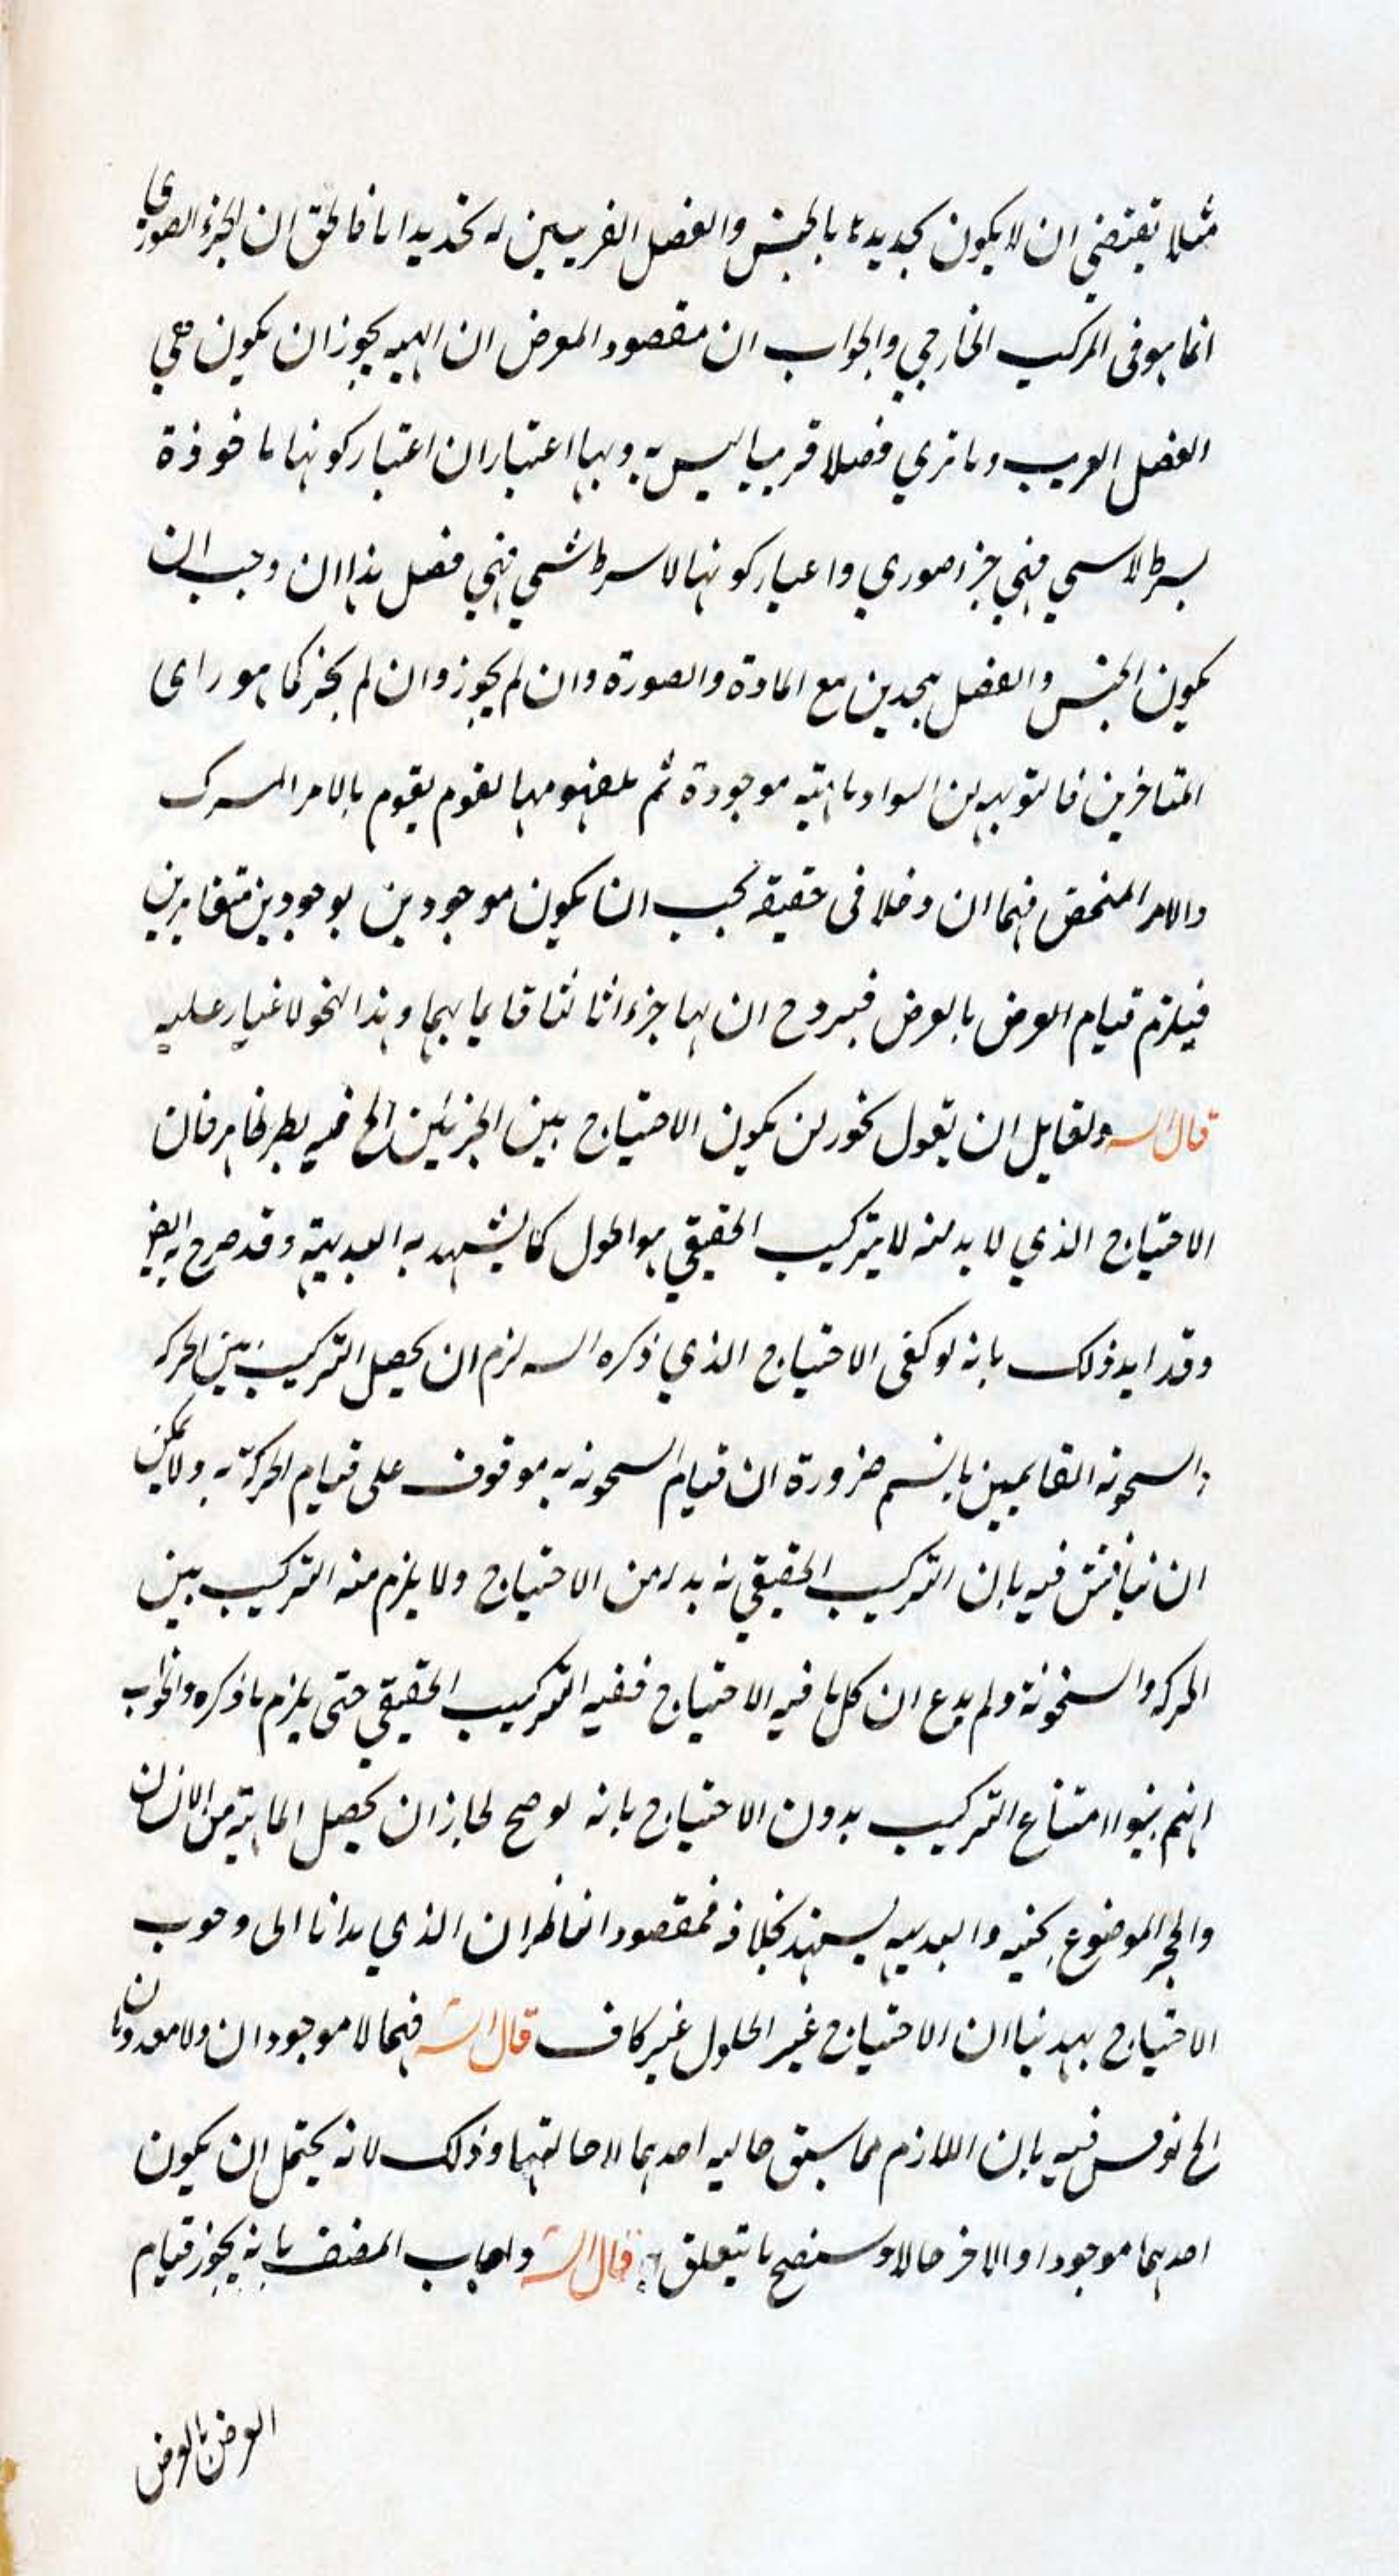 مثلا تقتضي ان لا يكون تحديده بالجنس والفصل القريبين له تحديدا تاما فالحق ان الجزء الصوري
انما هو فى المركب الخارجي والجواب ان مقصود المعرض ان الهيه يجوز ان يكون هي
الفصل القريب وما تري فصلا قريبا ليس به ولها اعتباران اعتبار كونها ماخوذة
بسرط لاسى فهي جزء صوري واعبار كونها لا سرط شي فهي فصل هذا ان وجب ان
يكون الجنس والفصل متحدين مع المادة والصورة وان لم يجوز وان لم يجز كما هو راى
المتاخرين فالتوجيه ان السواد ماهية موجودة ثم مفهومها لقوم يقوم بالامر المسرك
والامر المختص فهما ان دخلا فى حقيقه يجب ان يكون موجودين بوجودين متغايرين
فيلزم قيام العرض بالعرض فيروح ان لها جزءا ثالثا قايما بهما وهذا النحو لا غبار عليه
قال الس ولقايل ان يقول يجوز ان يكون الاحتياج بين الجزئين الخ فيه نظر ظاهر فان
الاحتياج الذي لا بد منه لا يتركيب الحقيقي هو الحلول كما يشهد به البديهة وقد صرح به ايضا
وقد ايد ذلك بانه لو كفى الاحتياج الذي ذكره السه لزم ان يحصل التركيب بين الحركه
والسحونه القايمين بالجسم ضرورة ان قيام السحونه به موقوف على قيام الحركة به ولا يمكن
ان يناقش فيه بان التركيب الحقيقي لا بد له من الاحتياج ولا يلزم منه التركيب بين
الحركه والسخونة ولم يدع ان كل ما فيه الاحتياج ففيه التركيب الحقيقي حتى يلزم ما ذكره والجواب
انهم بينوا امتناع التركيب بدون الاحتياج بانه لو صح لجاز ان يحصل الماهية من الانسان
والحجر الموضوع بجنبه والبديهه يسهد بخلافه فمقصود الناظر ان الذي هدانا الى وجوب
الاحتياج يهدينا ان الاحتياج غير الحلول غير كاف قال الش فهما لا موجودان ولا معدومان
الخ نوقس فيه بان اللازم مما سبق حاليه احدهما لا حاليتهما وذلك لانه يحتمل ان يكون
احدهما موجودا والاخر حالا وسنصح ما يتعلق به قال الش واجاب المصنف بانه يجوز قيام
العرض بالعرض